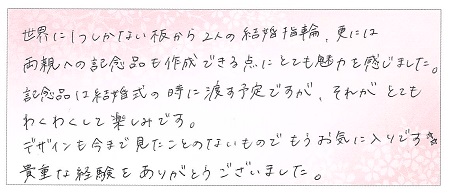 世界に1つしかない板から2人の結婚指輪、更には
両親への記念品も作成できる点にとても魅力を感じました。
記念品は結婚式の時に渡す予定ですが、それがとても
わくわくして楽しみです。
デザインも今まで見たことのないものでもうお気に入りです
貴重な経験をありがとうございました。